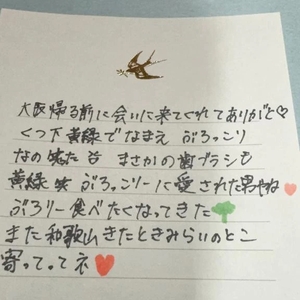 大阪帰る前に会いに来てくれてありがと♡
くつ下黄緑でなまえ ぶろっこり
なの笑た まさかの歯ブラシも
黄緑笑 ぶろっこりーに愛された男やね
ぶろりー食べたくなってきた
また和歌山きたときみらいのとこ
寄ってってネ